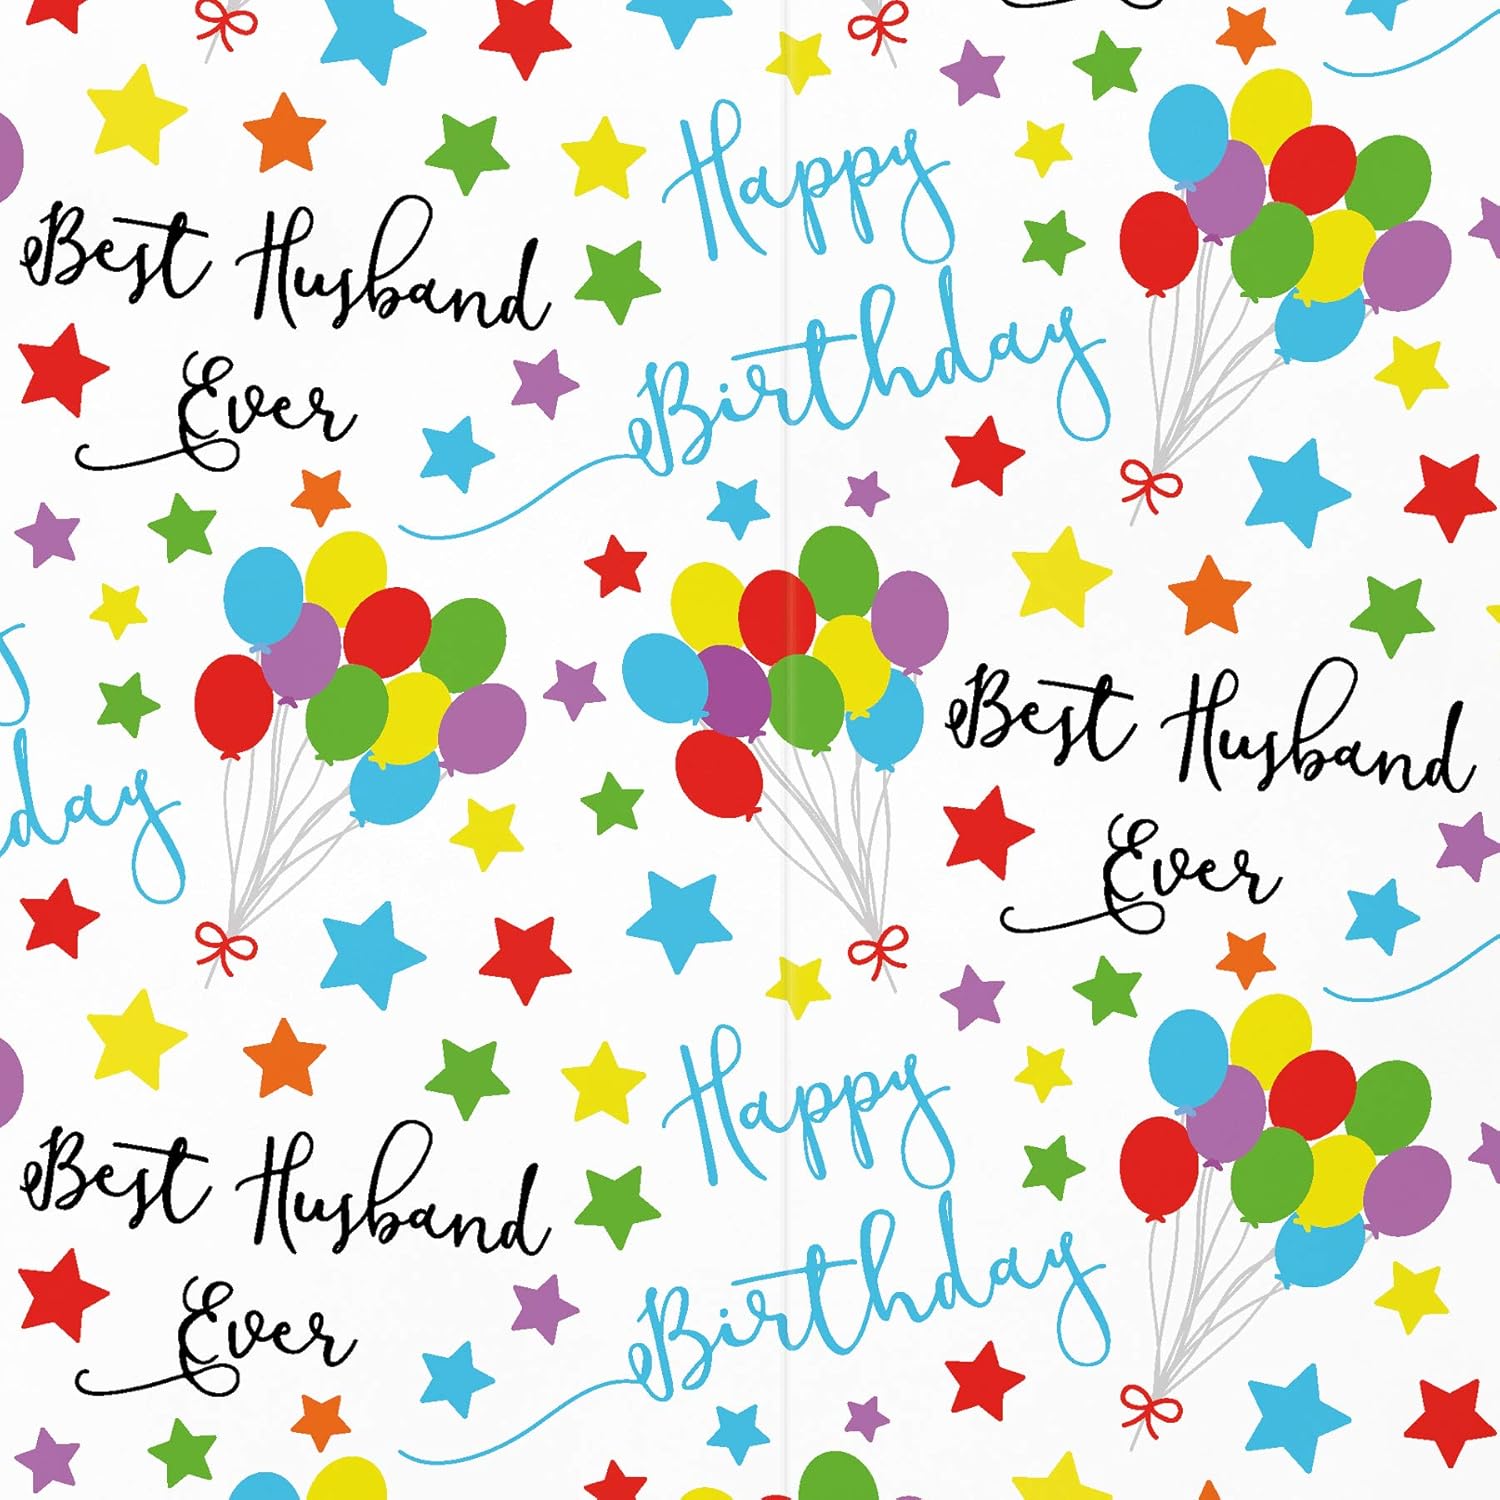 Happy
Birthday
Best Husband
Ever
day
Best Husband
Ever
Happy
Birthday
Best Husband
Ever